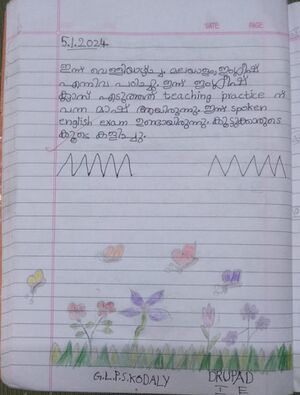 DATE PAGE
5.1.2024
ഇന്ന് വെള്ളിയാഴ്ച. മലയാളം, ഇംഗ്ലീഷ്
എന്നിവ പഠിച്ചു. ഇന്ന് ഇംഗ്ലീഷ്
ക്ലാസ് എടുത്തത് teaching practice ന്
വന്ന മാഷ് ആയിരുന്നു. ഇന്ന് spoken
english exam ഉണ്ടായിരുന്നു. കൂട്ടുകാരുടെ
കൂടെ കളിച്ചു.
G.L.P.S. KODALY DRUPAD
I E